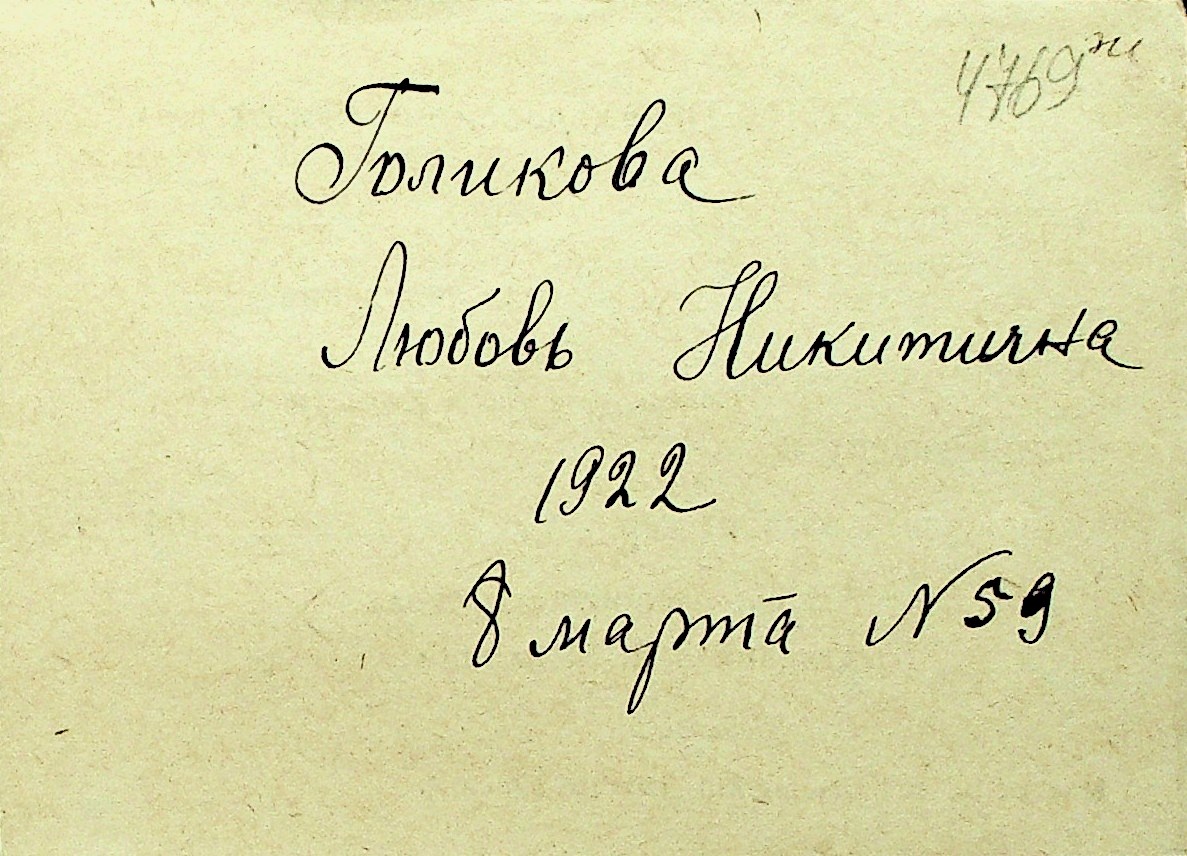 4769
Голикова
Любовь Никитична
1922
8 марта N 59